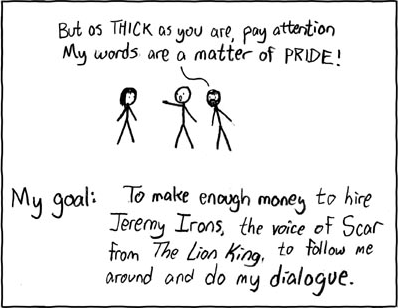 But as THICK as you are, pay attention
My words are a matter of PRIDE!
My goal: To make enough money to hire
Jeremy Irons, the voice of Scar
from The Lion King, to follow me
around and do my dialogue.